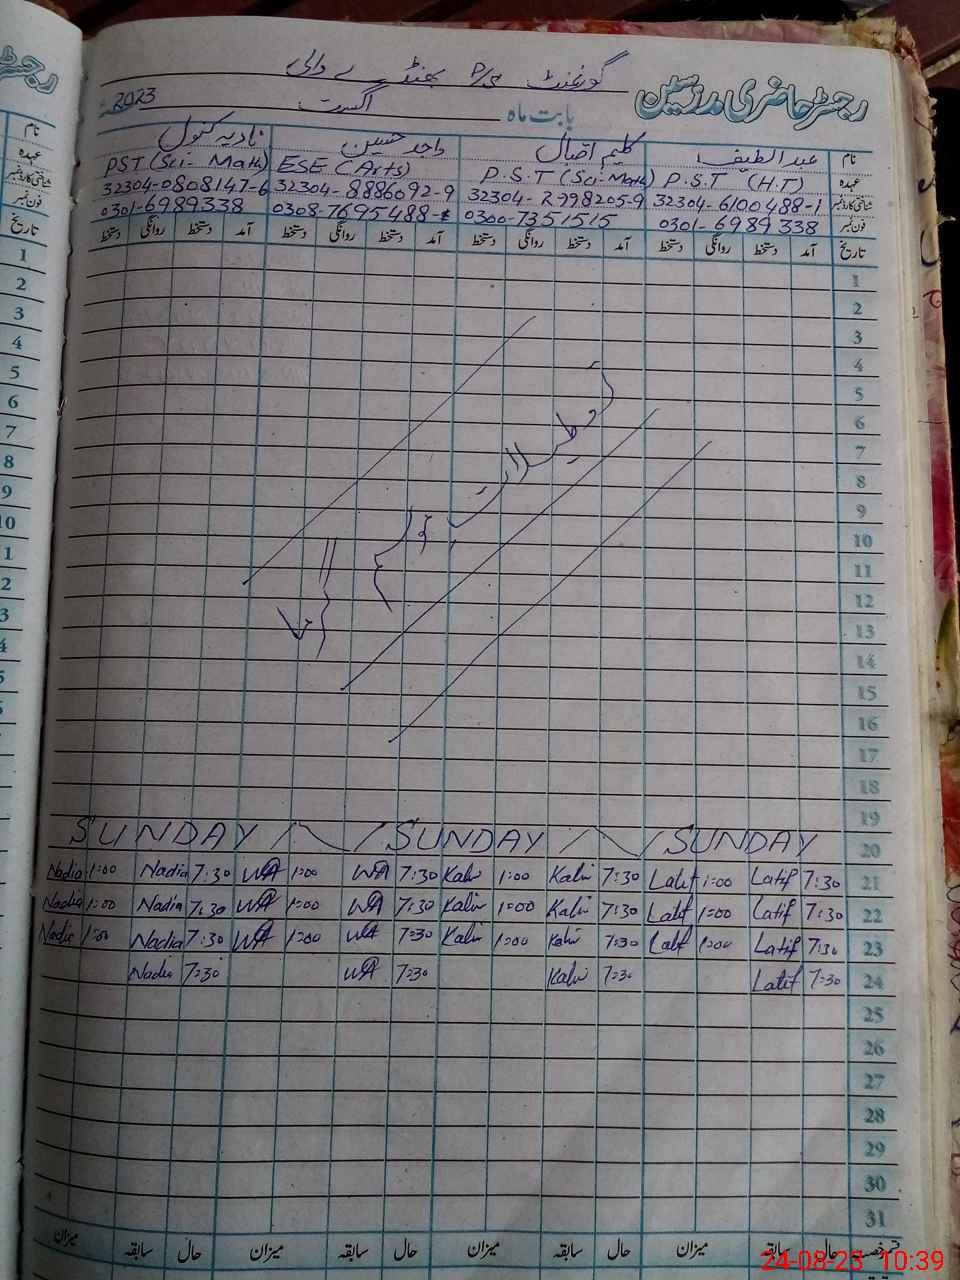 رجسٹر حاضری مدرسین
گورنمنٹ P/S بھنڈے والی
بابت ماہ اگست 2023
نام عبدالطیف کلیم اقبال واجد حسین نادیہ کنول
عہدہ P.S.T (H.T) P.S.T (Sci-Math) ESE (Arts) PST (Sci-Math)
شناختی کارڈ نمبر 32304-6100488-1 32304-2998205-9 32304-8886092-9 32304-0808147-6
فون نمبر 0301-6989338 0300-7351515 0308-7695488 0301-6989338
تاریخ آمد دستخط روانگی دستخط آمد دستخط روانگی دستخط آمد دستخط روانگی دستخط آمد دستخط روانگی دستخط
1
2
3
4
5
6
7
8
9
10
11
12
13
14
15
16
17
18
19
تعطیلات
SUNDAY SUNDAY SUNDAY 20
Nadia 1:00 Nadia 7:30 WA 1:00 WA 7:30 Kalim 1:00 Kalim 7:30 Latif 1:00 Latif 7:30 21
Nadia 1:00 Nadia 7:30 WA 1:00 WA 7:30 Kalim 1:00 Kalim 7:30 Latif 1:00 Latif 7:30 22
Nadia 1:00 Nadia 7:30 WA 1:00 WA 7:30 Kalim 1:00 Kalim 7:30 Latif 1:00 Latif 7:30 23
Nadia 7:30 WA 7:30 Kalim 7:30 Latif 7:30 24
25
26
27
28
29
30
31
حال سابقہ میزان حال سابقہ میزان حال سابقہ میزان حال سابقہ میزان
24-08-23 10:39